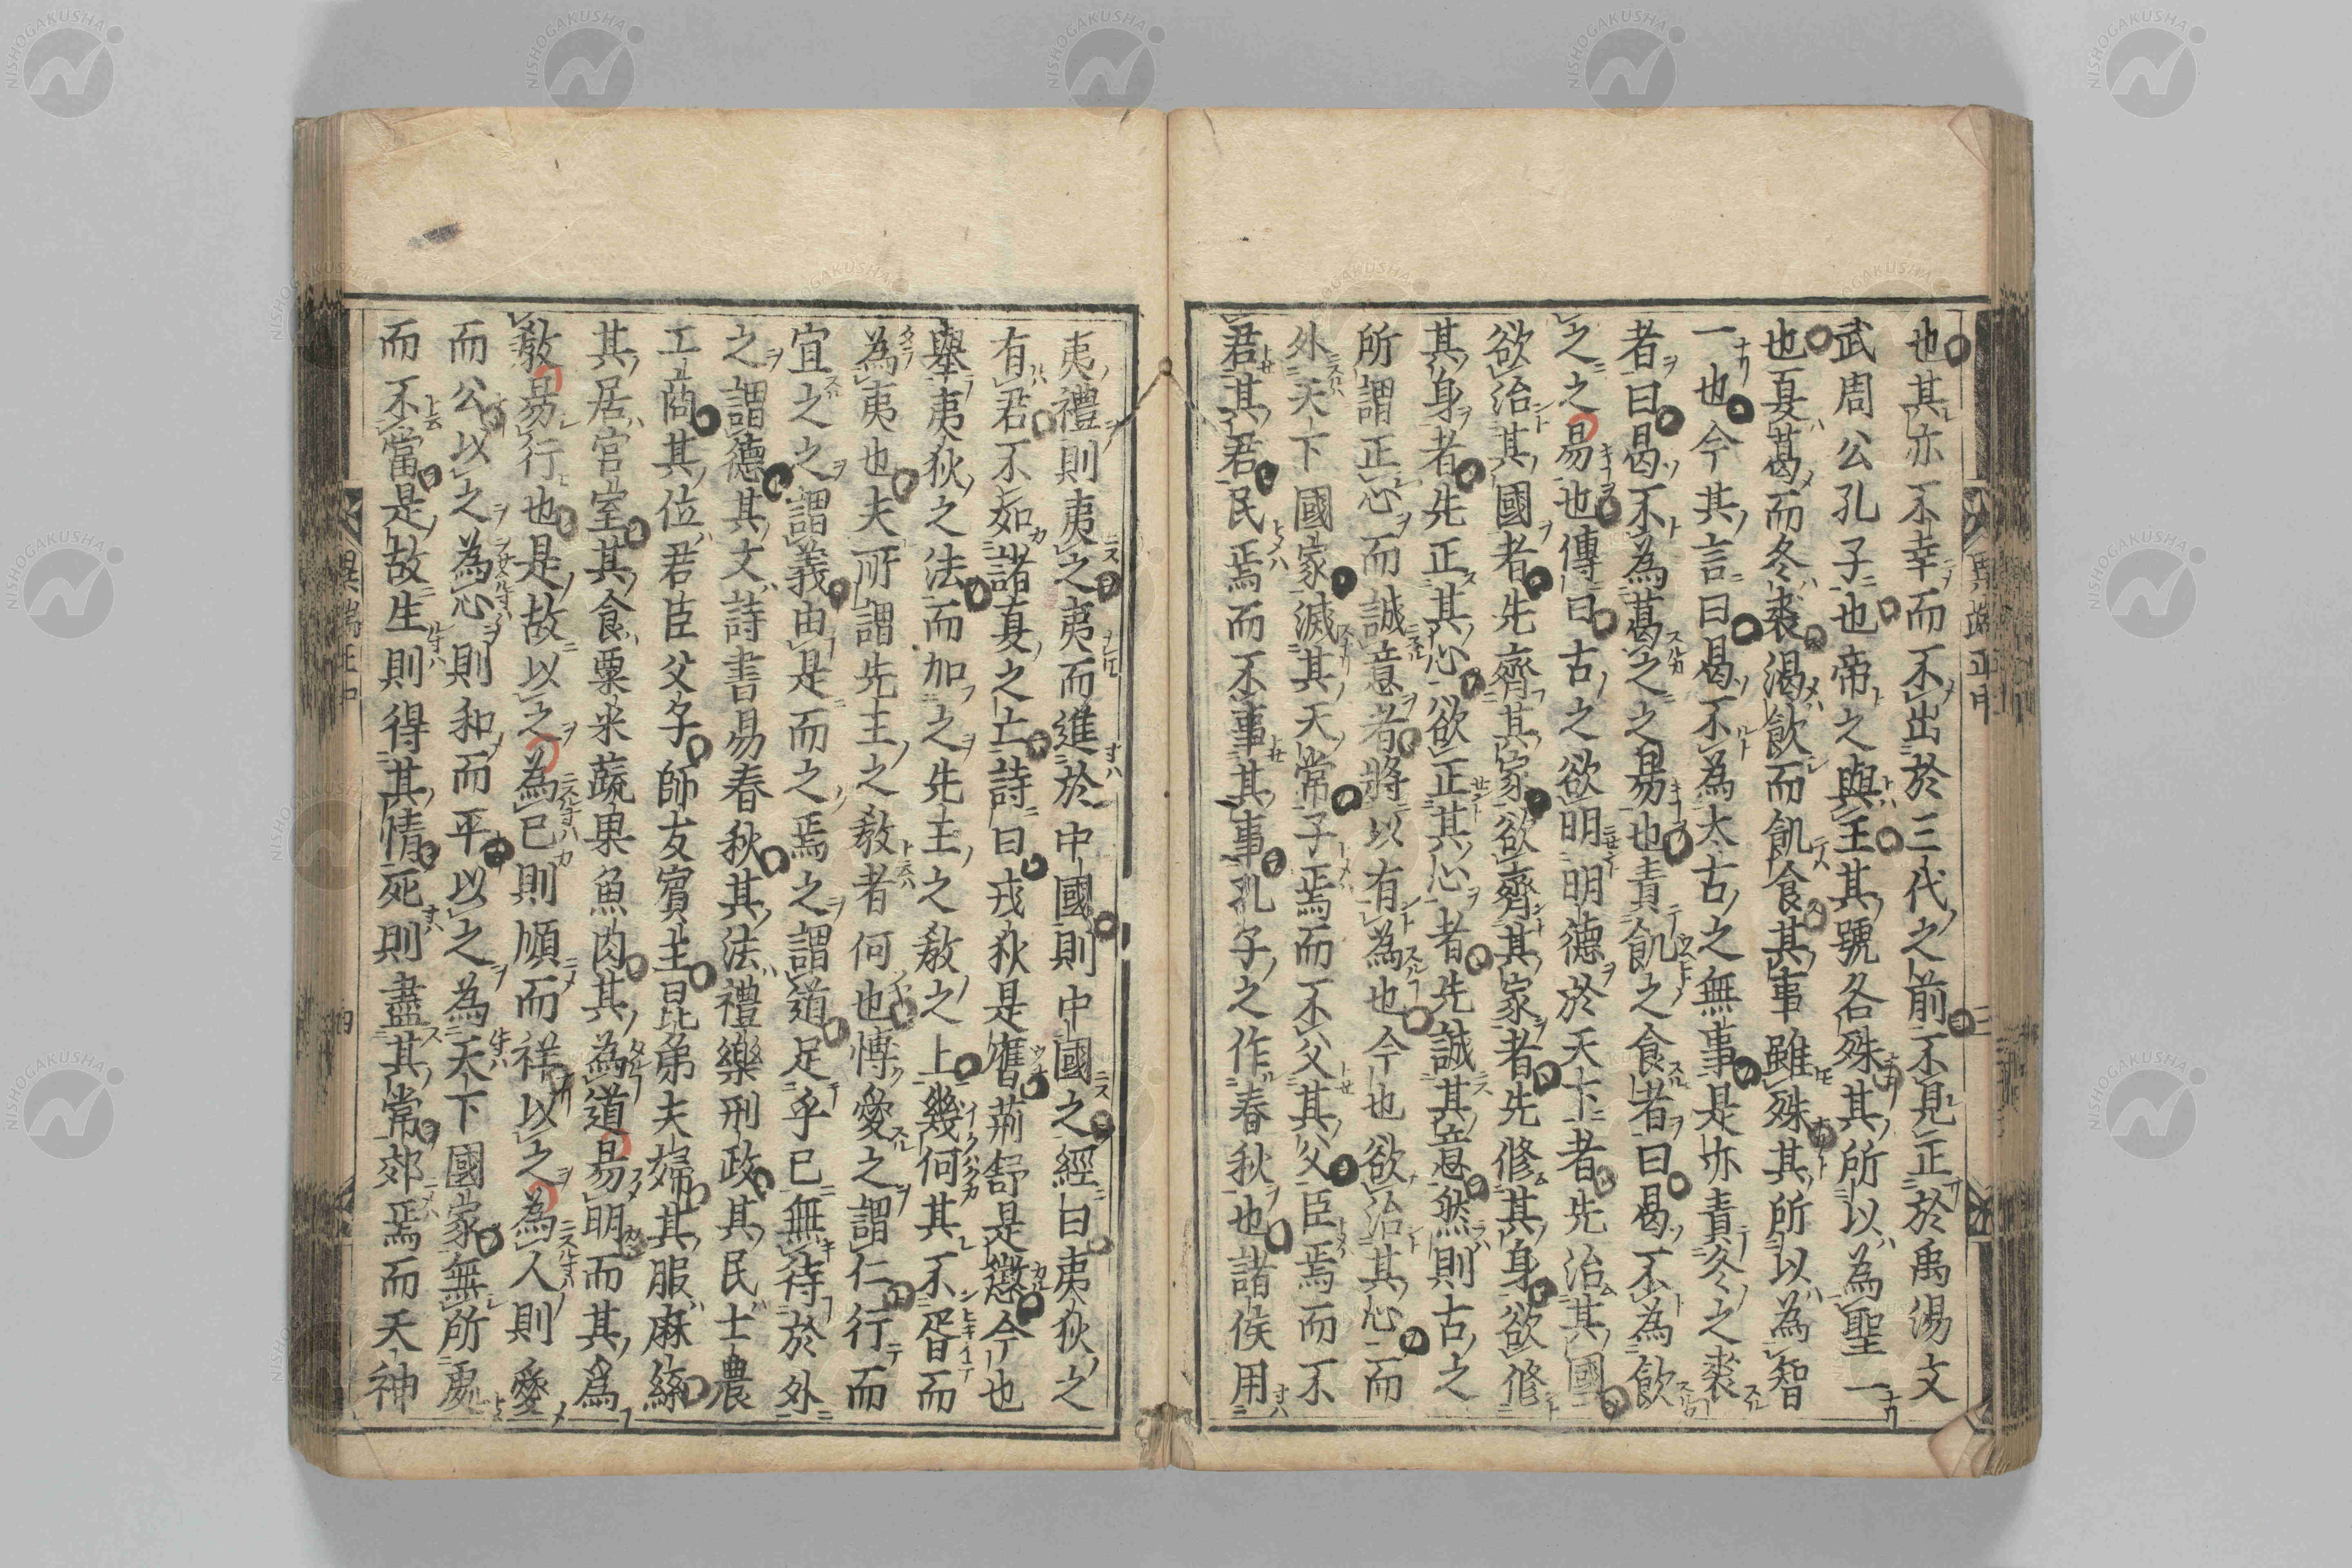 也其亦不幸而不出於三代之前不見正於禹湯文
武周公孔子也帝之與王其號各殊其所以為聖一
也夏葛而冬裘渴飲而飢食其事雖殊其所以為智
一也今其言曰曷不為太古之無事是亦責冬之裘
者曰曷不為葛之之易也責飢之食者曰曷不為飲
之之易也傳曰古之欲明明德於天下者先治其國
欲治其國者先齊其家欲齊其家者先修其身欲修
其身者先正其心欲正其心者先誠其意然則古之
所謂正心而誠意者將以有為也今也欲治其心而
外天下國家滅其天常子焉而不父其父臣焉而不
君其君民焉而不事其事孔子之作春秋也諸侯用
夷禮則夷之夷而進於中國則中國之經曰夷狄之
有君不如諸夏之亡詩曰戎狄是膺荊舒是懲今也
舉夷狄之法而加之先王之教之上幾何其不胥而
為夷也夫所謂先王之教者何也博愛之謂仁行而
宜之之謂義由是而之焉之謂道足乎已無待於外
之謂德其文詩書易春秋其法禮樂刑政其民士農
工商其位君臣父子師友賓主昆弟夫婦其服麻絲
其居宮室其食粟米蔬果魚肉其為道易明而其為
教易行也是故以之為已則順而祥以之為人則愛
而公以之為心則和而平以之為天下國家無所處
而不當是故生則得其情死則盡其常郊焉而天神
異端正中
三
異端正中
四
NISHOGAKUSHA